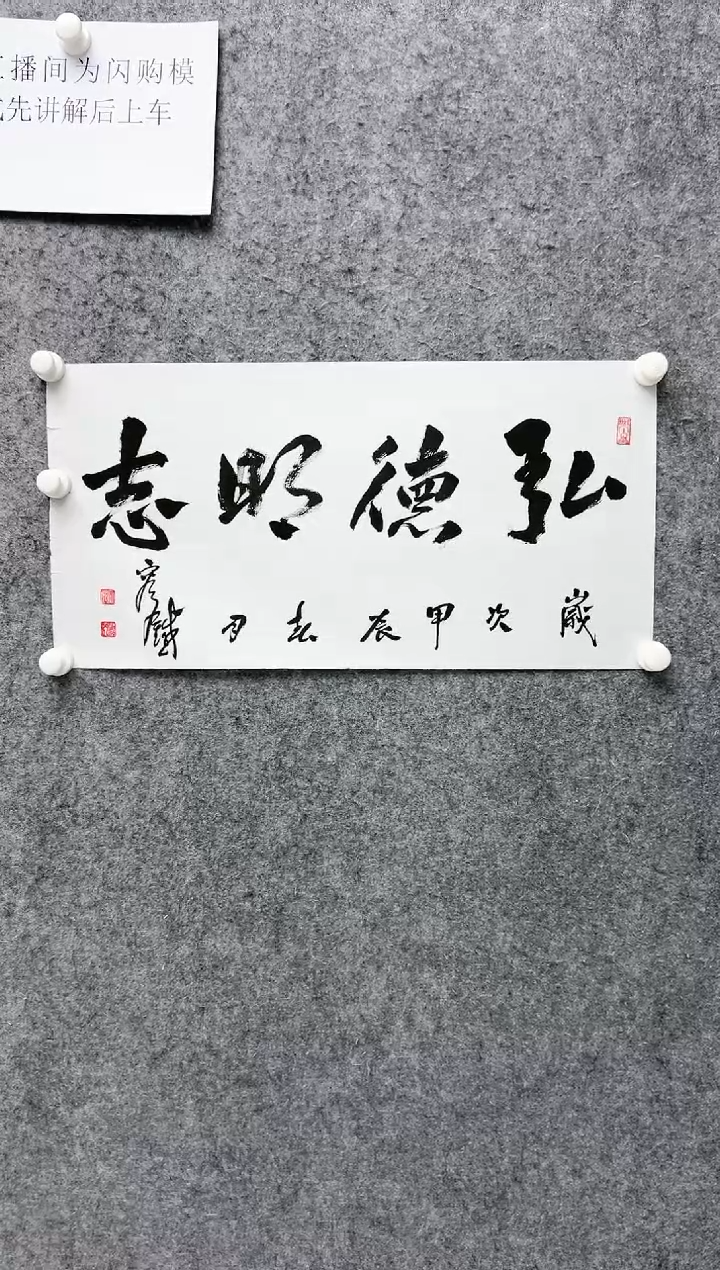 播间为闪购模
先讲解后上车
弘德明志
歲次甲辰春月